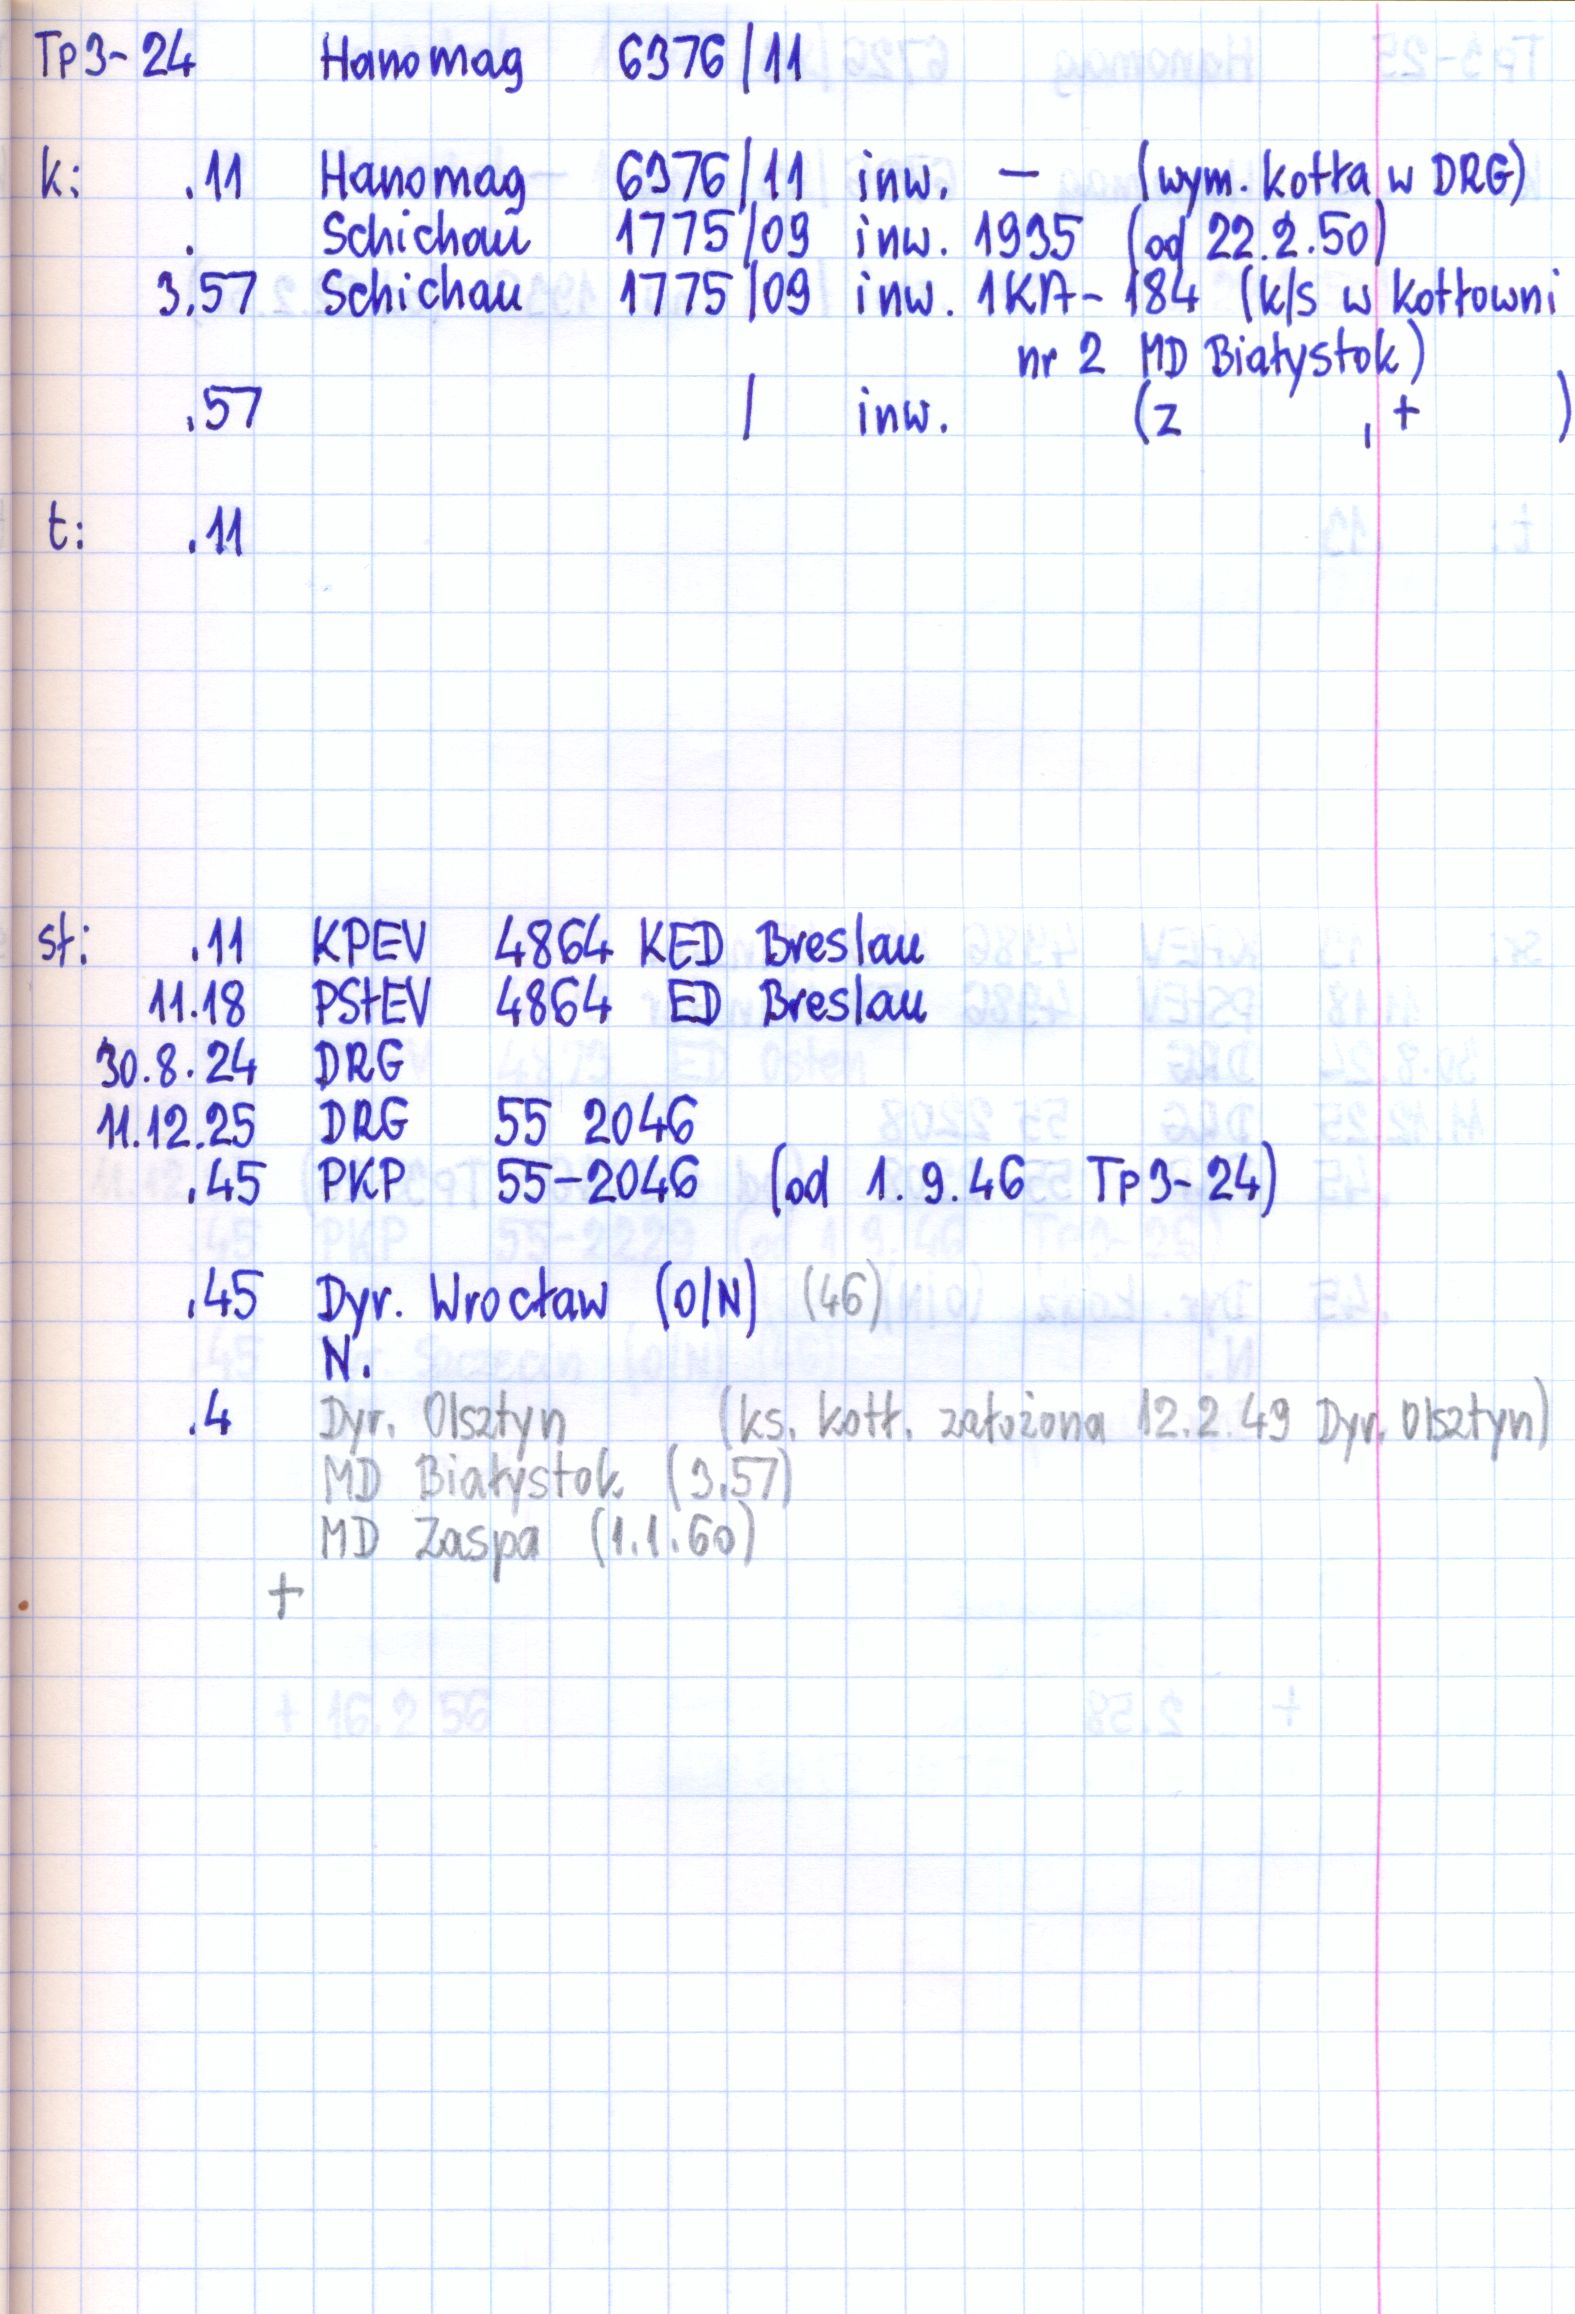 Tp3-24 Hanomag 6376/11
k: .11 Hanomag 6376/11 inw. – (wym. kotła w DRG)
. Schichau 1775/09 inw. 1935 (od 22.2.50)
3.57 Schichau 1775/09 inw. 1KA-184 (k/s w kotłowni
nr 2 MD Białystok)
.57 / inw. (z , + )
t: .11
st: .11 KPEV 4864 KED Breslau
11.18 PStEV 4864 ED Breslau
30.8.24 DRG
11.12.25 DRG 55 2046
.45 PKP 55-2046 (od 1.9.46 Tp3-24)
.45 Dyr. Wrocław (O/N) (46)
N.
.4 Dyr. Olsztyn (ks. kotł. założona 12.2.49 Dyr. Olsztyn)
MD Białystok (3.57)
MD Zaspa (1.1.60)
+